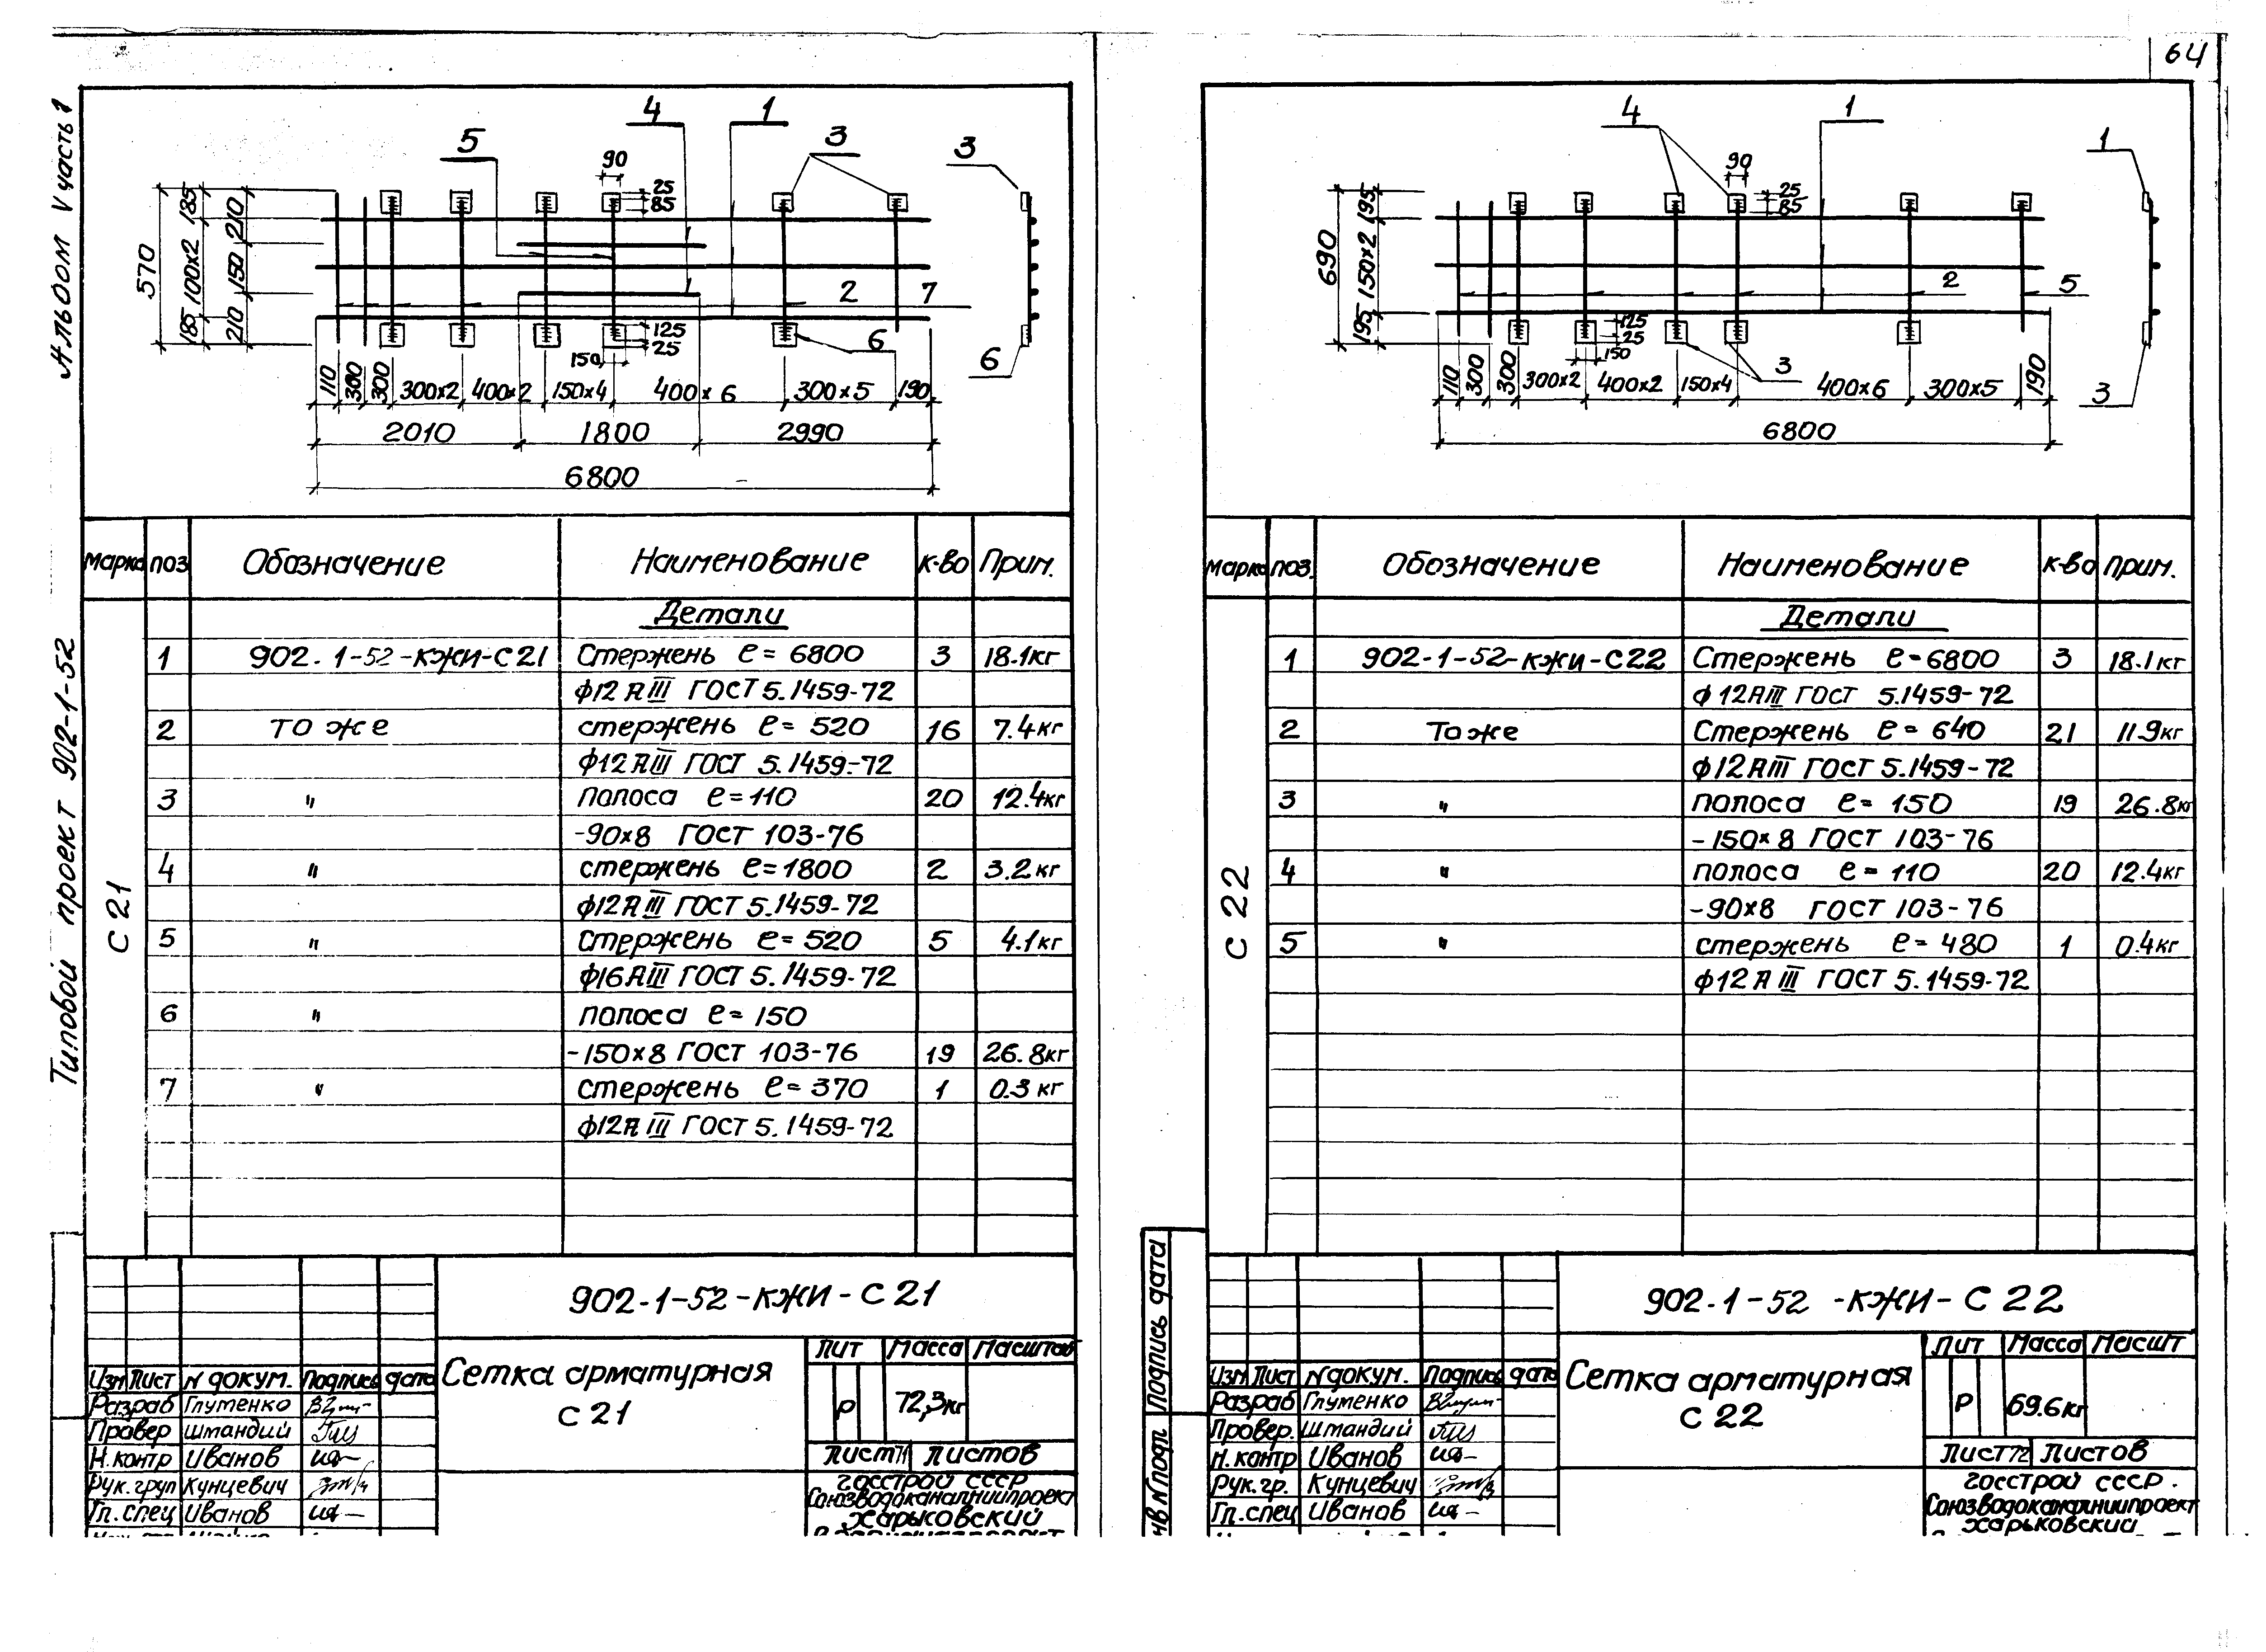 64
Альбом V часть 1
Типовой проект 902-1-52
5
4
1
3
3
90
25
85
570
185
100x2
185
210
150
210
2
7
125
25
150
6
6
110
300
300
300x2
400x2
150x4
400x6
300x5
190
2010
1800
2990
6800
Марка
поз
Обозначение
Наименование
к-во
Прим.
Детали
С 21
1
902.1-52-КЖИ-С21
Стержень ℓ= 6800
3
18.1кг
ф12 АIII ГОСТ 5.1459-72
2
то же
стержень ℓ= 520
16
7.4кг
ф12АIII ГОСТ 5.1459-72
3
"
полоса ℓ=110
20
12.4кг
-90x8 ГОСТ 103-76
4
"
стержень ℓ=1800
2
3.2кг
ф12АIII ГОСТ 5.1459-72
5
"
стержень ℓ= 520
5
4.1кг
ф16АIII ГОСТ 5.1459-72
6
"
полоса ℓ= 150
-150x8 ГОСТ 103-76
19
26.8кг
7
"
стержень ℓ= 370
1
0.3 кг
ф12АIII ГОСТ 5.1459-72
902-1-52-КЖИ-С 21
Сетка арматурная
С 21
Лит
Масса
Масштаб
Р
72,3кг
Лист 71
Листов
Изм
Лист
N докум.
Подпись
дата
Разраб
Глутенко
Провер
Штандий
Н.контр
Иванов
Рук.груп
Кунцевич
Гл.спец
Иванов
Госстрой СССР
Союзводоканалниипроект
Харьковский
4
1
1
90
25
85
690
195
150x2
195
2
5
125
25
150
3
3
110
300
300
300x2
400x2
150x4
400x6
300x5
190
6800
Марка
поз.
Обозначение
Наименование
к-во
Прим.
Детали
С 22
1
902-1-52-КЖИ-С22
Стержень ℓ=6800
3
18.1кг
ф12АIII ГОСТ 5.1459-72
2
То же
Стержень ℓ= 640
21
11.9кг
ф12АIII ГОСТ 5.1459-72
3
"
полоса ℓ= 150
19
26.8кг
-150x8 ГОСТ 103-76
4
"
полоса ℓ= 110
20
12.4кг
-90x8 ГОСТ 103-76
5
"
стержень ℓ= 480
1
0.4кг
ф12 АIII ГОСТ 5.1459-72
Подпись дата
902.1-52 -КЖИ-С 22
Сетка арматурная
С 22
Лит
Масса
Масшт
Р
69.6кг
Лист 72
Листов
Изм
Лист
N докум.
Подпись
дата
Разраб
Глутенко
Провер.
Штандий
Н.контр
Иванов
Рук.гр.
Кунцевич
Гл.спец
Иванов
Госстрой СССР.
Союзводоканалниипроект
Харьковский